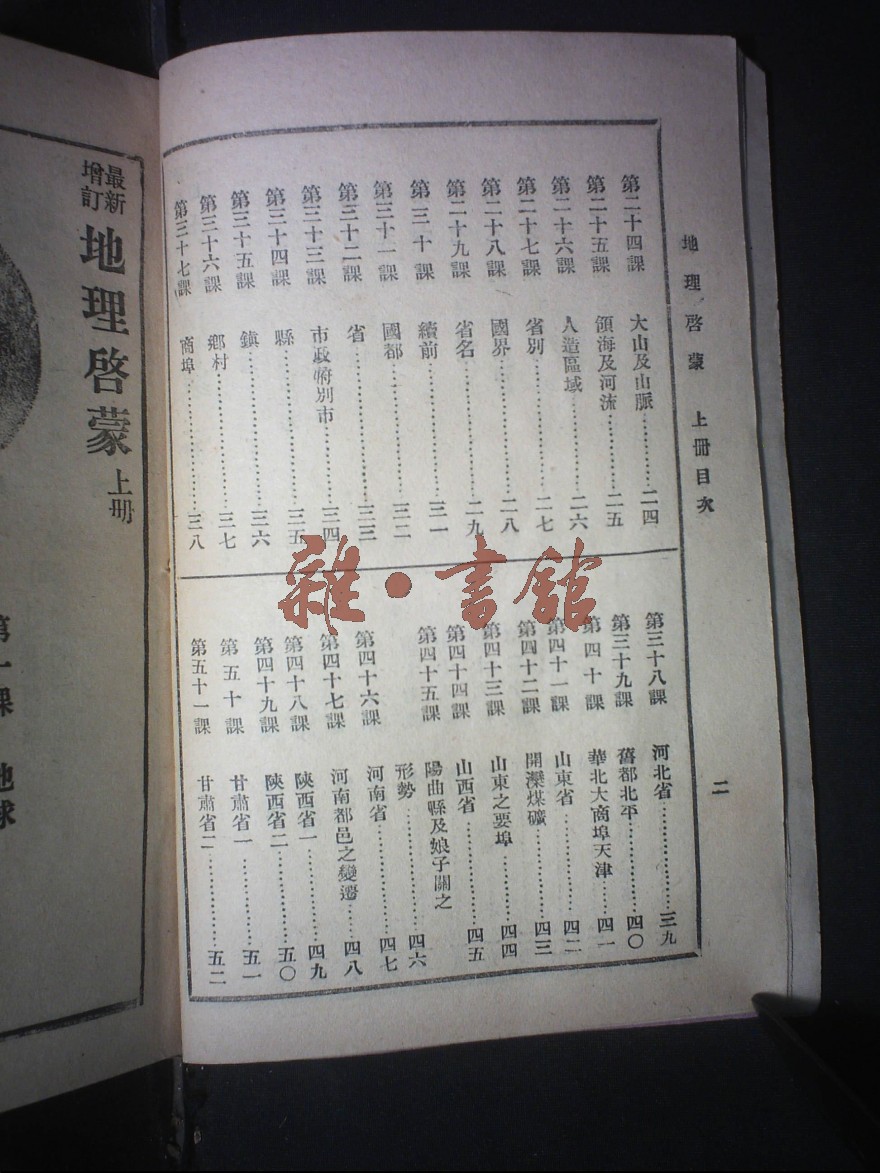 地理啓蒙　上冊目次
二
第二十四課　大山及山脈……二四
第二十五課　領海及河流……二五
第二十六課　人造區域……二六
第二十七課　省別……二七
第二十八課　國界……二八
第二十九課　省名……二九
第三十課　續前……三一
第三十一課　國都……三二
第三十二課　省……三三
第三十三課　市政府別市……三四
第三十四課　縣……三五
第三十五課　鎮……三六
第三十六課　鄉村……三七
第三十七課　商埠……三八
第三十八課　河北省……三九
第三十九課　舊都北平……四〇
第四十課　華北大商埠天津……四一
第四十一課　山東省……四二
第四十二課　開灤煤礦……四三
第四十三課　山東之要埠……四四
第四十四課　山西省……四五
第四十五課　陽曲縣及娘子關之
形勢……四六
第四十六課　河南省……四七
第四十七課　河南都邑之變遷……四八
第四十八課　陝西省一……四九
第四十九課　陝西省二……五〇
第五十課　甘肅省一……五一
第五十一課　甘肅省二……五二
最新
增訂
地理啓蒙　上册
第一課　地球
雜·書館